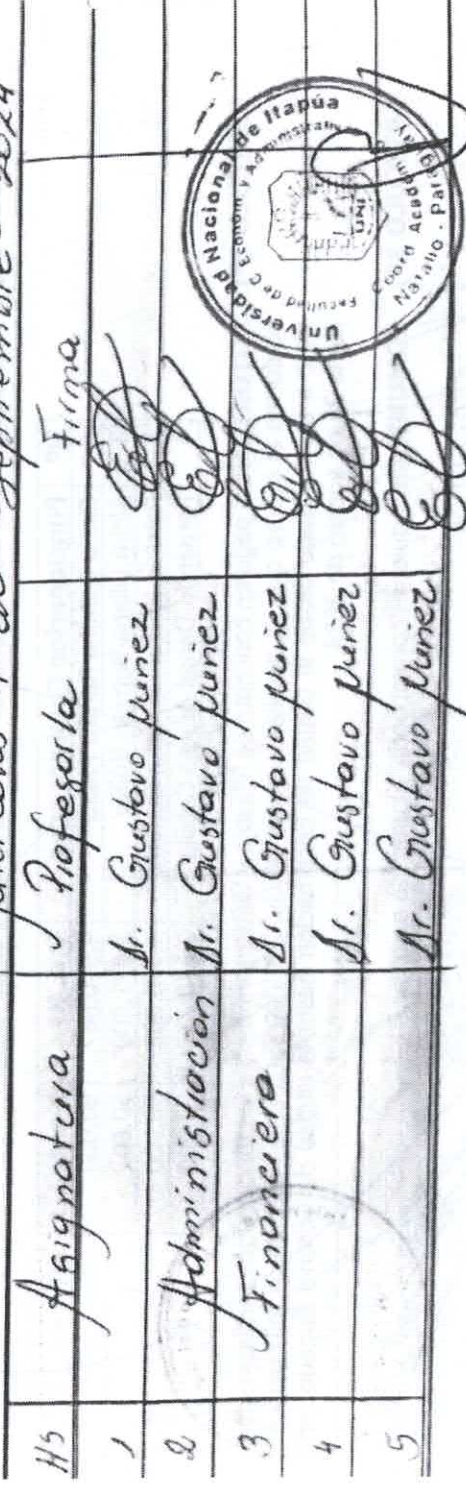 de septiembre 2024
Hs Asignatura Profesor/a Firma
1 Dr. Gustavo Nuñez
2 Administración Dr. Gustavo Nuñez
3 Financiera Dr. Gustavo Nuñez
4 Dr. Gustavo Nuñez
5 Dr. Gustavo Nuñez
Universidad Nacional de Itapúa
Facultad de C Econom y Administrativas
UNI
Coord Academ
Natalio - Paraguay